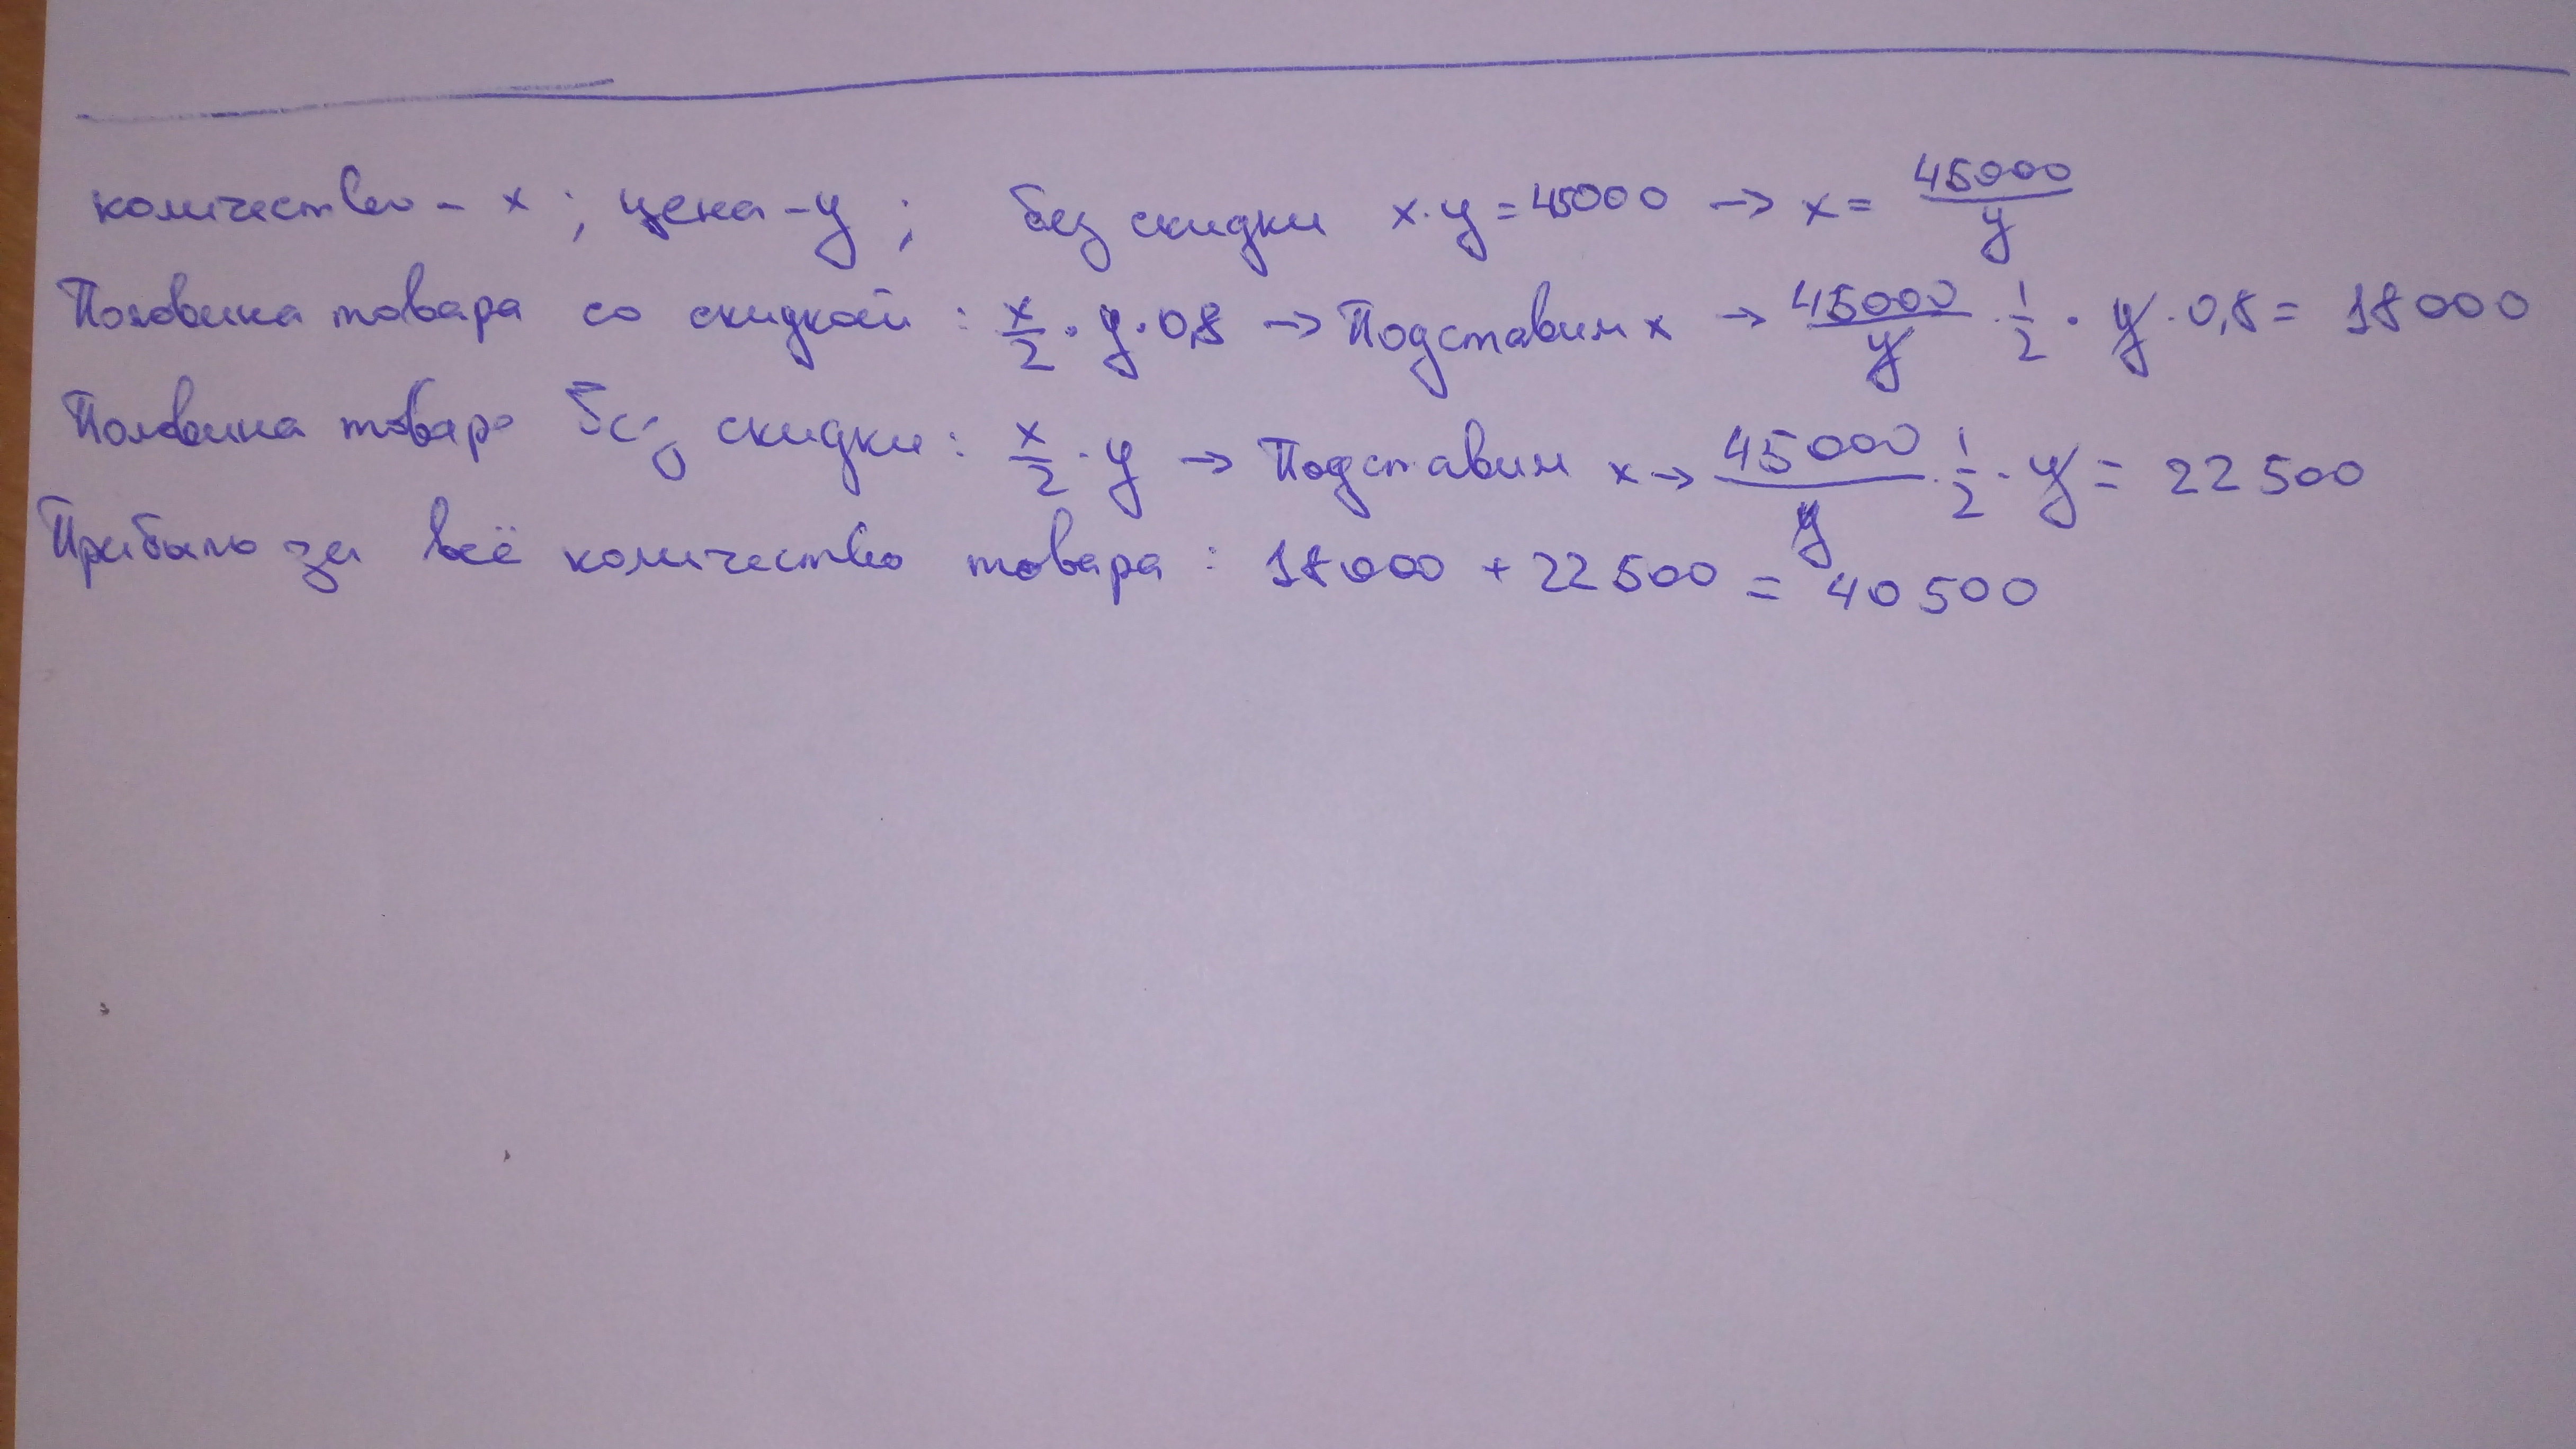 количество - x ; цена - y ; без скидки x · y = 45000 → x = 45000/y
Половина товара со скидкой : x/2 · y · 0,8 → Подставим x → 45000/y · 1/2 · y · 0,8 = 18000
Половина товара без скидки : x/2 · y → Подставим x → 45000/y · 1/2 · y = 22500
Прибыль за всё количество товара : 18000 + 22500 = 40500